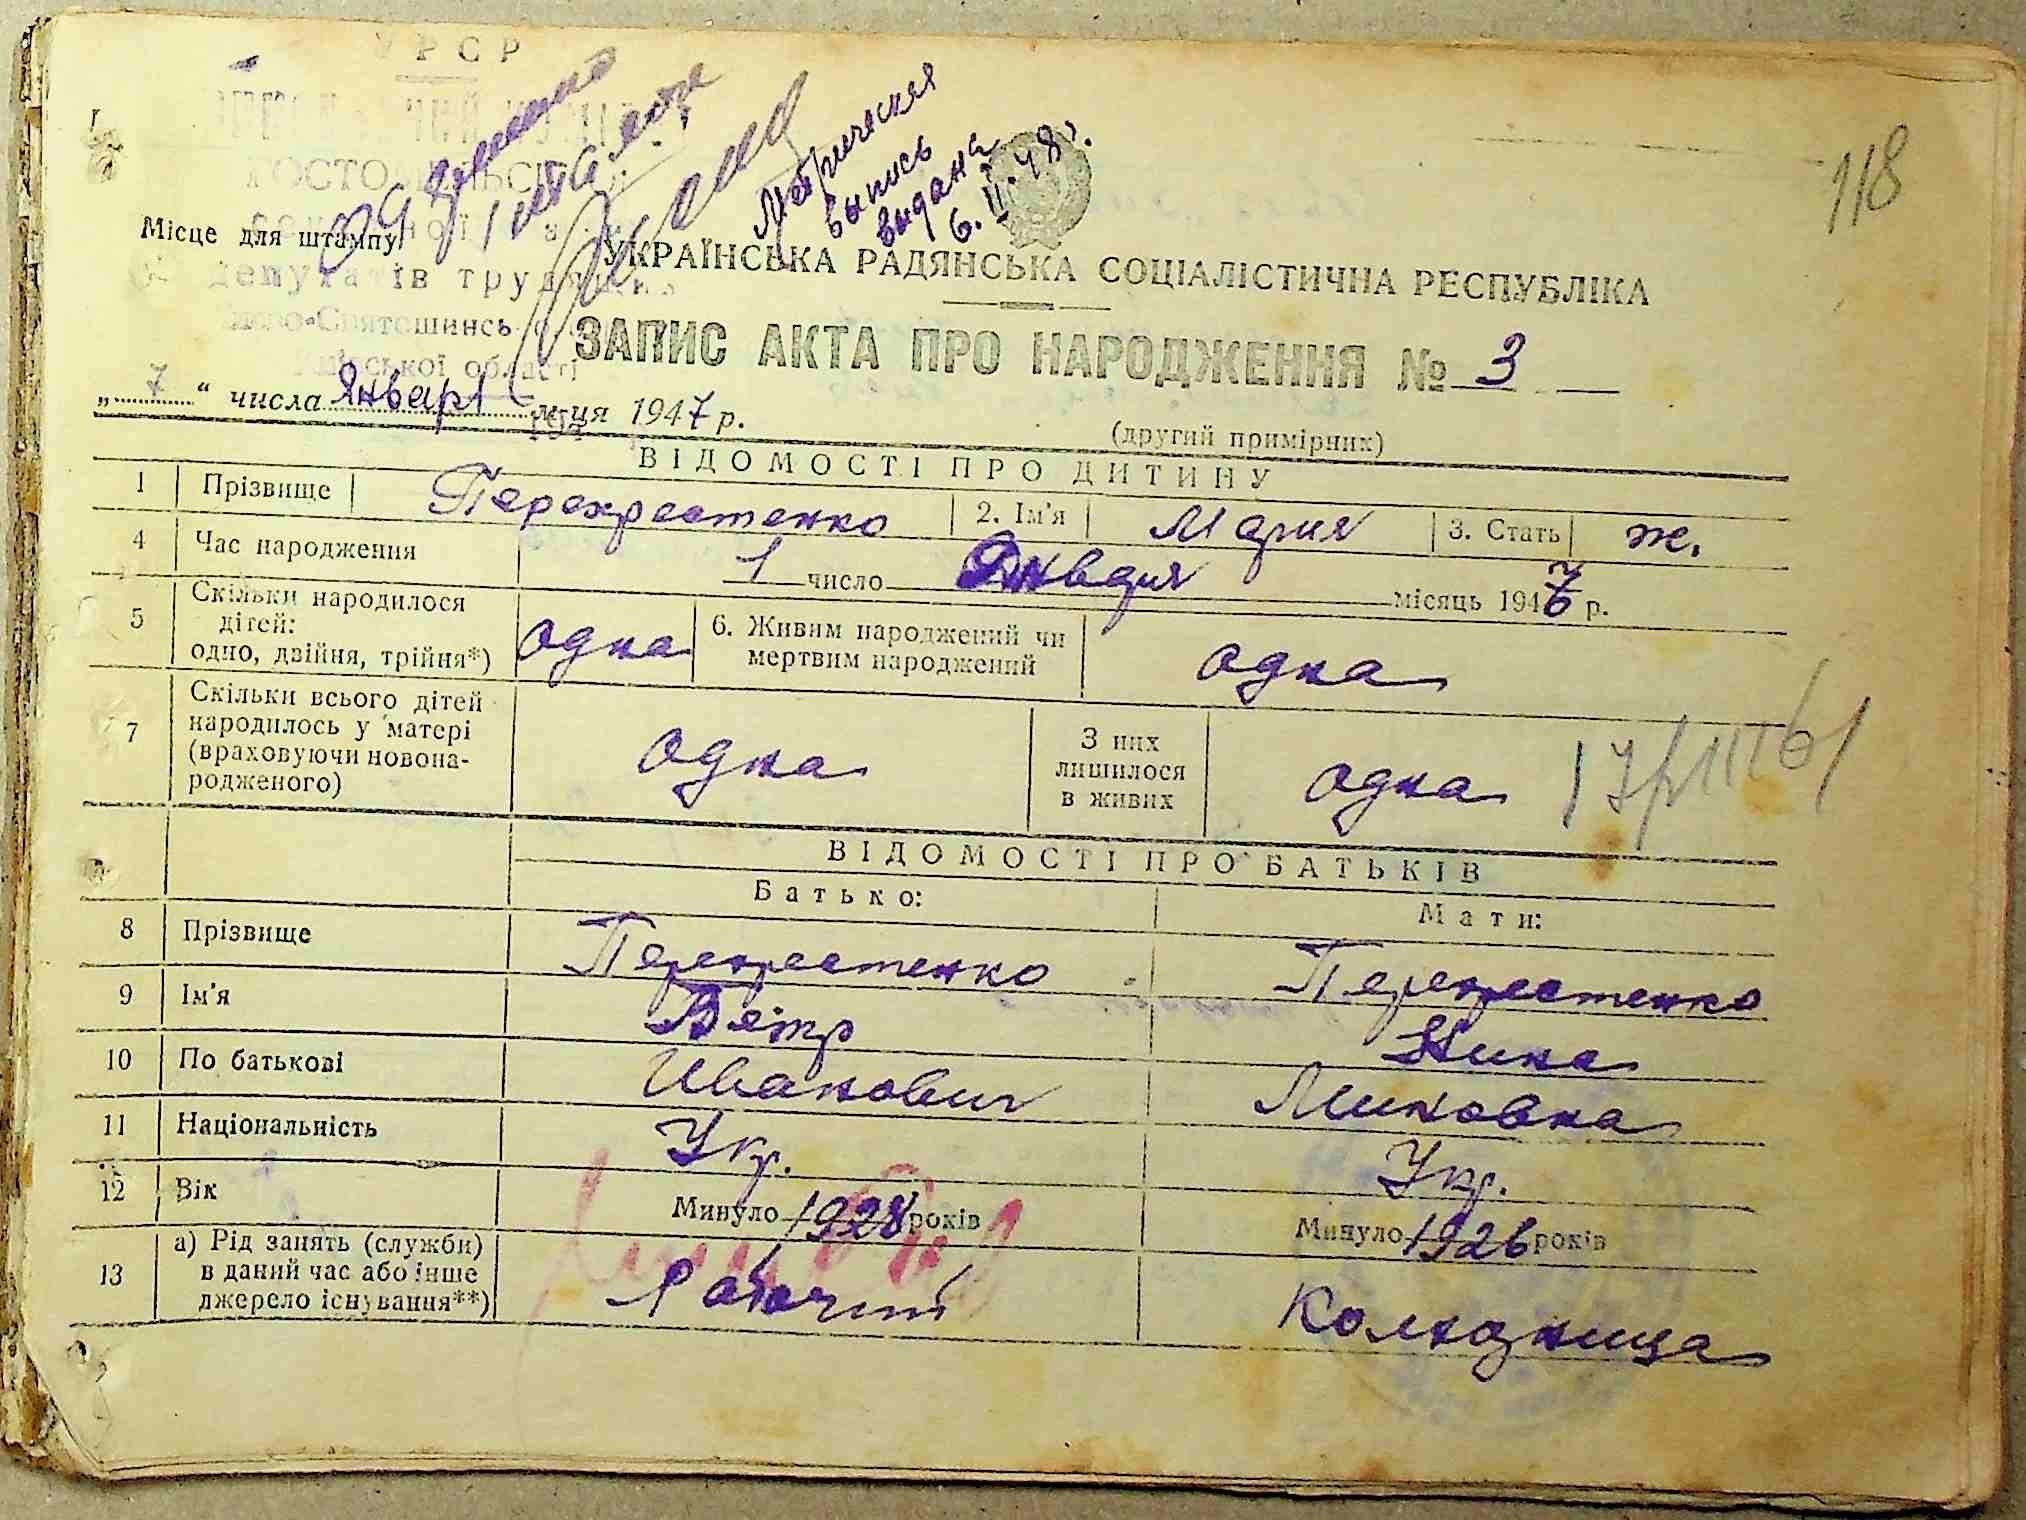 УРСР
Метрическая
выпись
выдана
6.II.48 г.
118
Місце для штампу
УКРАЇНСЬКА РАДЯНСЬКА СОЦІАЛІСТИЧНА РЕСПУБЛІКА
депутатів трудящих
Києво-Святошинськ
Київської області
ЗАПИС АКТА ПРО НАРОДЖЕННЯ № 3
„7“ числа Января м-ця 1947 р.
(другий примірник)
ВІДОМОСТІ ПРО ДИТИНУ
1 Прізвище Перехрестенко 2. Ім'я Мария 3. Стать ж.
4 Час народження 1 число Января місяць 1947 р.
5 Скільки народилося дітей: одно, двійня, трійня*) одна 6. Живим народжений чи мертвим народжений одна
7 Скільки всього дітей народилось у матері (враховуючи новонародженого) одна З них лишилося в живих одна
ВІДОМОСТІ ПРО БАТЬКІВ
Батько: Мати:
8 Прізвище Перехрестенко Перехрестенко
9 Ім'я Петр Нина
10 По батькові Иванович Миновна
11 Національність Укр. Укр.
12 Вік Минуло 1928 років Минуло 1926 років
13 а) Рід занять (служби) в даний час або інше джерело існування**) Рабочий Колхозница